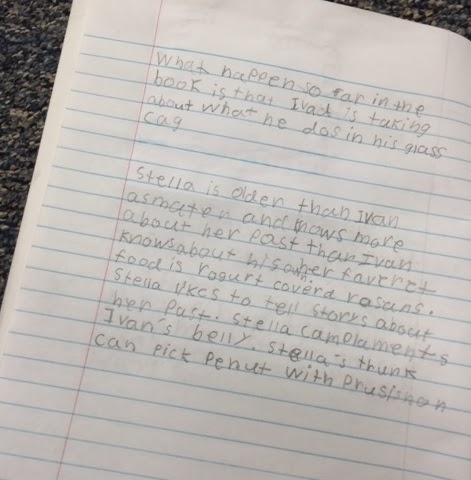 What happen so far in the
book is that Ivan is taking
about what he dos in his glass
cag
Stella is older than Ivan
asmaten and knows more
about her past than Ivan
knowsabout his. her favret
food is rogurt coverd rasans.
Stella likes to tell storys about
her past. Stella camplaments
Ivan's belly. Stella's thunk
can pick penut with prusishon